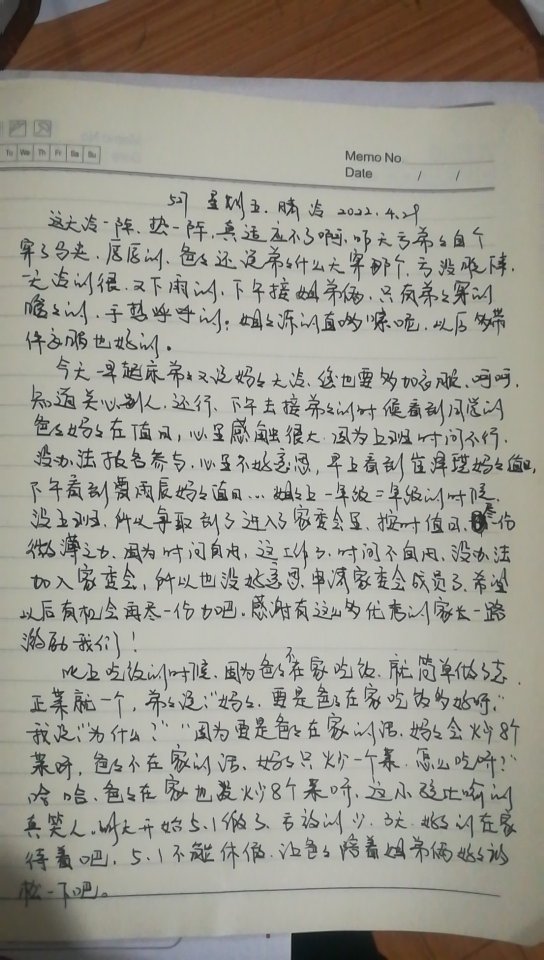 Tu We Th Fr Sa Su
Memo No.
Date / /
527 星期五 晴 冷 2022.4.29
这天冷一阵,热一阵,真适应不了啊,昨天亏弟弟自个
穿了马夹,厚厚的,爸爸还说弟弟什么天穿那个,亏没脱下来,
天冷的很,又下雨的,下午接姐弟俩,只有弟弟穿的
暖暖的,手热呼呼的。姐姐冻的直哆嗦呢,以后多带
件衣服也好的。
今天一早起床弟弟又说妈妈天冷,您也要多加衣服,呵呵,
知道关心别人,还行,下午去接弟弟的时候看到同学的
爸爸妈妈在值日,心里感触很大,因为上班时间不行,
没办法报名参与,心里不好意思,早上看到崔泽 妈妈值日,
下午看到 雨辰妈妈值日…姐姐上一年级二年级的时候,
没上班,所以争取到了进入了家委会里,按时值日,尽一份
微薄之力,因为时间自由,这工作了,时间不自由,没办法
加入家委会,所以也没好意思申请家委会成员了,希望
以后有机会再尽一份力吧,感谢有这么多优秀的家长一路
激励我们!
晚上吃饭的时候,因为爸爸不在家吃饭,就简单做了点,
正菜就一个,弟弟说:“妈妈,要是爸爸在家吃饭多好呀,”
我说:“为什么?”“因为要是爸爸在家的话,妈妈会炒8个
菜呀,爸爸不在家的话,妈妈只炒一个菜,怎么吃呀?”
哈哈,爸爸在家也没炒8个菜呀,这小孩比喻的
真笑人,明天开始5.1假了,方放的少,3天,好好的在家
待着吧,5.1不能休假,让爸爸陪着姐弟俩好好放
松一下吧。